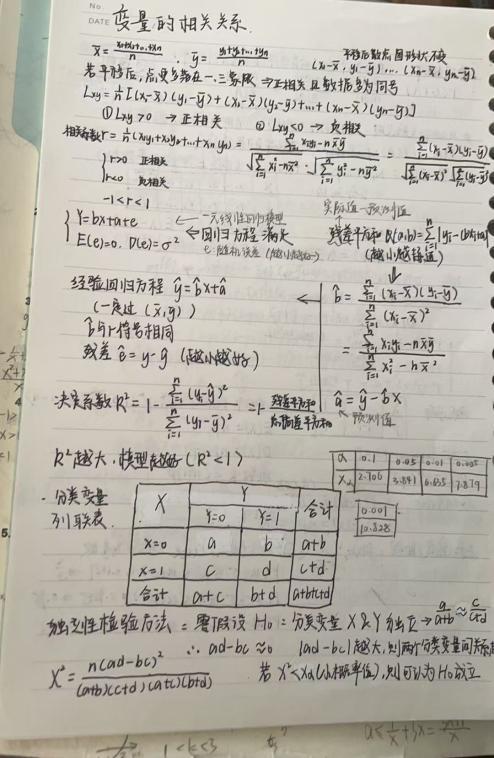 No.
DATE 变量的相关关系.
x̄ = (x₁+x₂+...+xn)/n . ȳ = (y₁+y₂+...+yn)/n 平移后散点图形状不变
(x₁-x̄, y₁-ȳ) ... (xn-x̄, yn-ȳ)
若平移后,点更多落在一.三象限 ⇒正相关且数据多为同号
Lxy = 1/n [(x₁-x̄)(y₁-ȳ)+(x₂-x̄)(y₂-ȳ)+...+(xn-x̄)(yn-ȳ)]
①Lxy>0 → 正相关 ②Lxy<0 → 负相关
相关系数 r = 1/n (x₁y₁+x₂y₂+...+xnyn) = (Σxiyi-nx̄ȳ)/(√(Σxi²-nx̄²)·√(Σyi²-nȳ²)) = Σ(xi-x̄)(yi-ȳ)/(√Σ(xi-x̄)² √Σ(yi-ȳ)²)
r>0 正相关
r<0 负相关
-1<r<1
实际值-预测值
Y=bx+a+e ← 一元线性回归模型
E(e)=0, D(e)=σ² ⇐回归方程满足
e:随机误差(越小越好)
残差平方和 Q(a,b)=Σ[yi-(bxi+a)]
(越小越接近)
经验回归方程 ŷ=b̂x+â
(一定过 (x̄,ȳ))
b̂与r符号相同
残差 ê=y-ŷ (越小越好)
← b̂ = Σ(xi-x̄)(yi-ȳ)/Σ(xi-x̄)²
= (Σxiyi-nx̄ȳ)/(Σxi²-nx̄²)
â=ȳ-b̂x̄
预测值
决定系数R²=1-Σ(yi-ŷ)²/Σ(yi-ȳ)²=1-残差平方和/总偏差平方和
R²越大,模型越好(R²<1)
α 0.1 0.05 0.01 0.005
Xα 2.706 3.841 6.635 7.879
0.001
10.828
·分类变量
列联表
X Y 合计
Y=0 Y=1
X=0 a b a+b
X=1 c d c+d
合计 a+c b+d a+b+c+d
独立性检验方法: 零假设 H₀: 分类变量 X & Y 独立→ a/(a+b) ≈ c/(c+d)
∴ ad-bc≈0 |ad-bc|越大,则两个分类变量间关系
X²=n(ad-bc)²/((a+b)(c+d)(a+c)(b+d)) 若 X²<Xα(小概率值),则可认为H₀成立